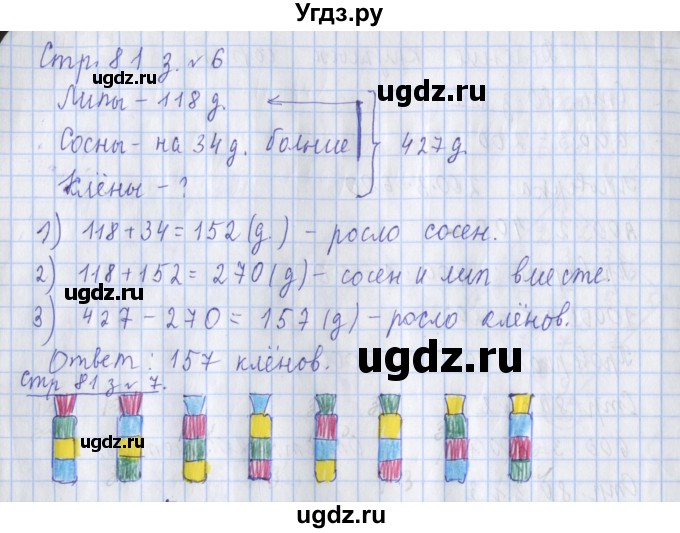 Угдз.ру
Стр. 81 з. № 6
Липы - 118 д.
Сосны - на 34 д. больше
427 д.
Клёны - ?
1) 118 + 34 = 152 (д.) - росло сосен.
2) 118 + 152 = 270 (д) - сосен и лип вместе.
3) 427 - 270 = 157 (д) - росло клёнов.
Ответ: 157 клёнов.
Стр 81 з № 7.
ugdz.ru
ugdz.ru
ugdz.ru
ugdz.ru
ugdz.ru
ugdz.ru
ugdz.ru